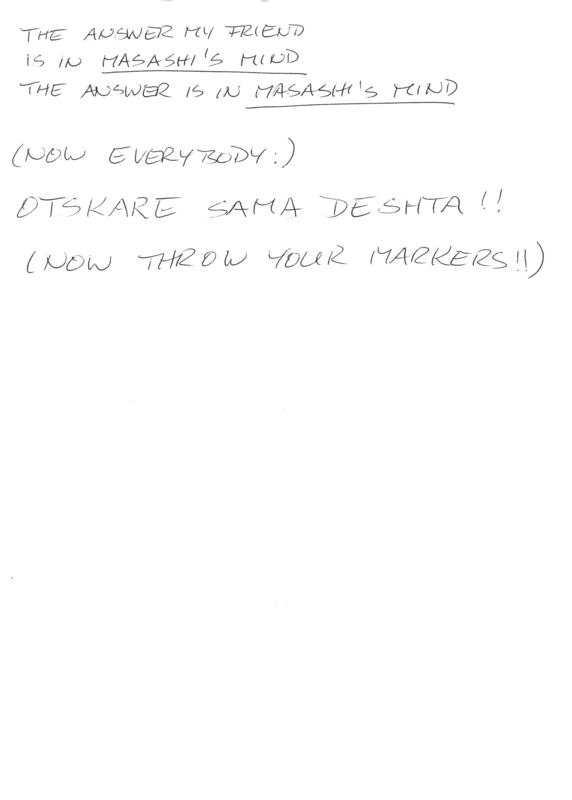 THE ANSWER MY FRIEND
IS IN MASASHI'S MIND
THE ANSWER IS IN MASASHI'S MIND
(NOW EVERYBODY:)
OTSKARE SAMA DESHTA!!
(NOW THROW YOUR MARKERS!!)